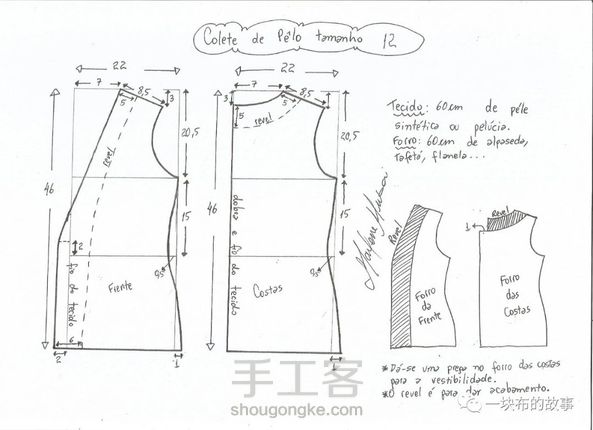 Colete de Pêlo tamanho 12
22
7
8,5
5
3
revel
20,5
46
15
2
0,5
Frente
fio do tecido
6
2
1
22
7
8,5
3
5
5
revel
20,5
46
15
dobra e fio do tecido
0,5
Costas
1
Tecido: 60cm de péle
sintética ou pelúcia.
Forro: 60cm de alpaseda,
tafetá, flanela...
Marlene Mukai
Revel
Forro
da
Frente
Revel
1
Forro
das
Costas
*Dá-se uma prega no forro das costas
para a vestibilidade.
*O revel é para dar acabamento.
手工客
shougongke.com
一块布的故事